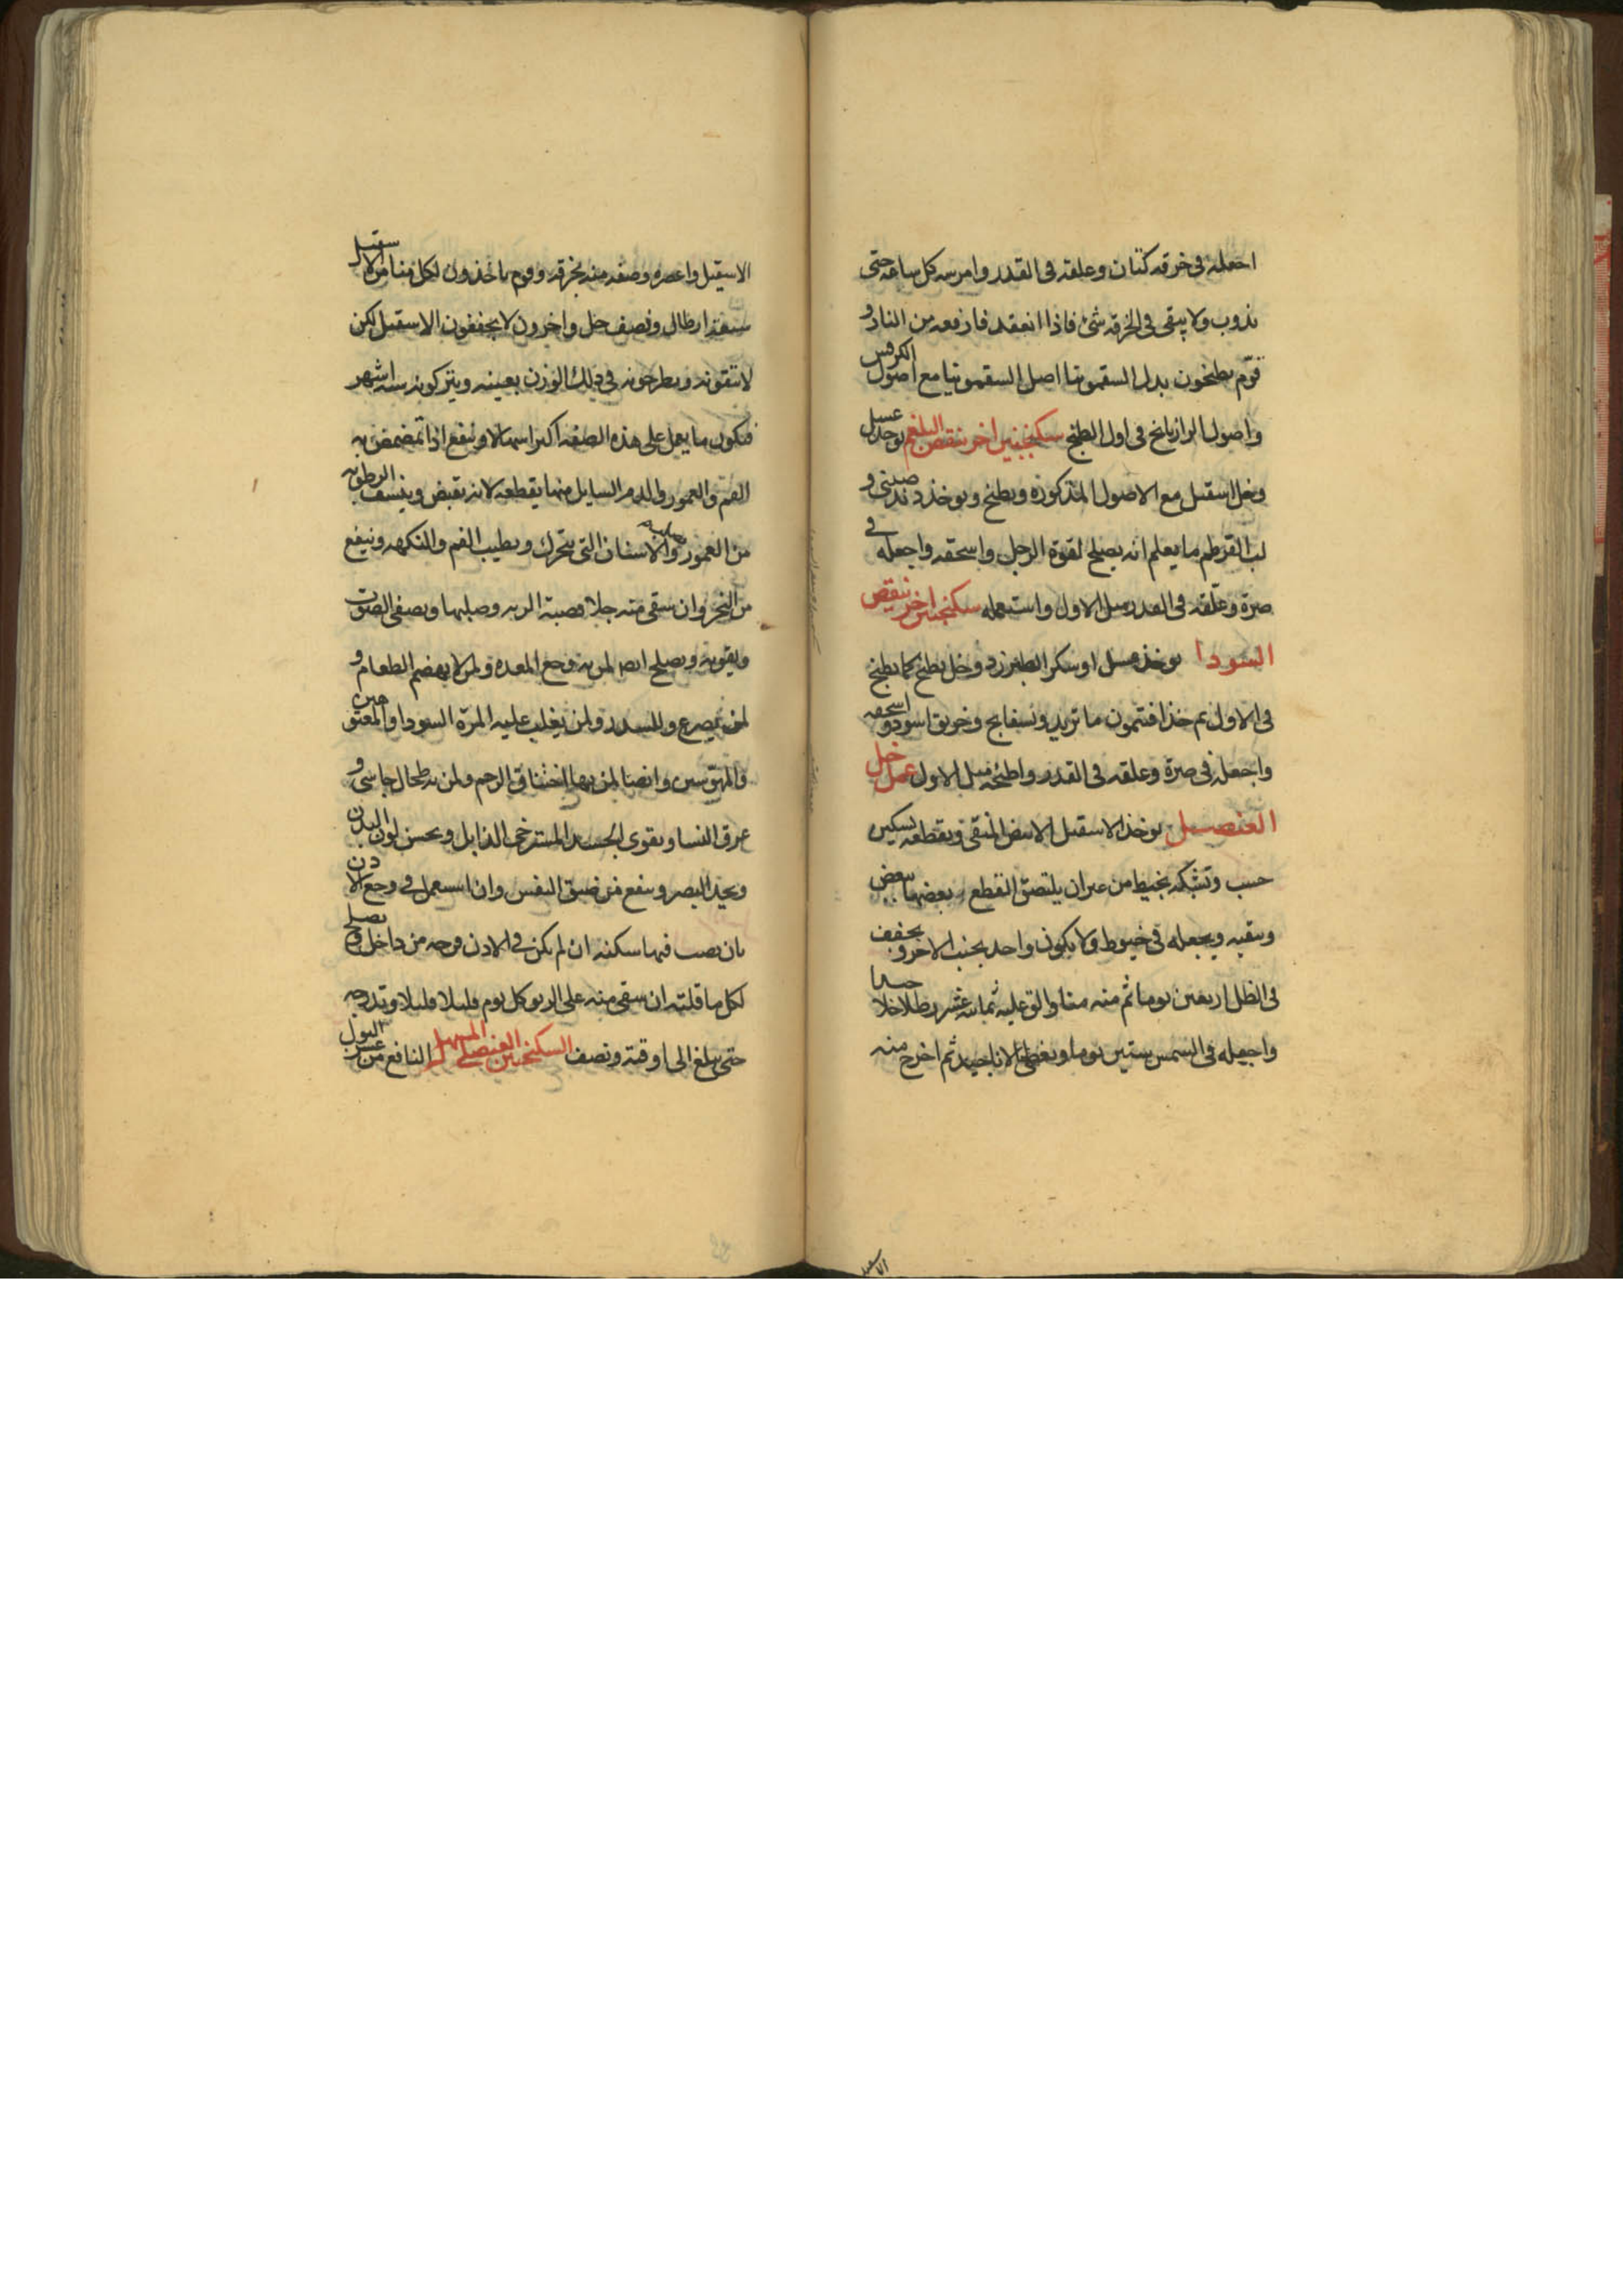 اجعله فى خرقه كتان وعلقه فى القدر وامرسه كل ساعه حتى
يذوب ولا يبقى فى الخرقه شئ فاذا انعقد فارفعه من النار و
قوم يطبخون بدل السقمونيا اصل السقمونيا مع اصول الكرفس
واصول الرازيانج فى اول الطبخ سكنجبين اخر ينقص البلغم يوخذ عسل
وخل اسقيل مع الاصول المذكوره ويطبخ ويوخذ دند صينى و
لب القرطم ما يعلم انه يصلح لقوة الرجل واسحقه واجعله فى
صرة وعلقه فى القدر مثل الاول واستعمله سكنجبين اخر ينقص
السودا يوخذ عسل او سكر الطبرزد وخل يطبخ كما يطبخ
فى الاول ثم خذ افتيمون ما تريد وبسفايج وخربق اسود واسحقه
واجعله فى صرة وعلقه فى القدر واطبخه مثل الاول عمل خل
العنصل يوخذ الاسقيل الابيض المنقى ويقطعه بسكين
خشب وتشبكه بخيط من غير ان يلتصق القطع بعضها ببعض
وينقيه ويجعله فى خيوط ولا يكون واحد بجنب الاخر ويجفف
فى الظل اربعين يوما ثم منه منا والق عليه ثمانيه عشر رطلا خلا جيدا
واجعله فى الشمس ستين يوما ويغطى الانا جيد ثم اخرج منه
الاسقيل
الاسقيل واعصره وصفه منه بخرقه وقوم ياخذون لكل منا من الاسقيل
سبعة ارطال ونصف خل واخرون لا يجففون الاسقيل لكن
لا تنقونه ويطرحونه فى ذلك الوزن بعينه ويتركونه سته اشهر
فيكون ما يعمل على هذه الصفه اكثر اسهالا وينفع اذا تمضمض به
الفم والعمور والدم السايل منها يقطعه لانه يقبض وينشف الرطوبه
من العمور والاسنان التى تتحرك ويطيب الفم والنكهه وينفع
من البخر وان سقى منه جلا قصبة الريه وصلبها ويصفى الصوت
ويقويه ويصلح ايض لمن به وجع المعده ولمن لا يهضم الطعام و
لمن يصرع وللسدر ولمن يغلب عليه المرة السودا والمعتوهين
والمهوسين وايضا لمن بها اختناق الرحم ولمن به طحال جاسى و
عرق النسا ويقوى الجسد المسترخى الذابل ويحسن لون البدن
ويحد البصر وينفع من ضيق النفس وان استعمل فى وجع الاذن
بان يصب فيها سكنه ان لم يكن فى الاذن قرحه من داخل ويصلح
لكل ما قلته ان سقى منه على الريق كل يوم قليلا قليلا وتدرجه
حتى يبلغ الى اوقية ونصف السكنجبين العنصلى المسهل النافع من عسر البول